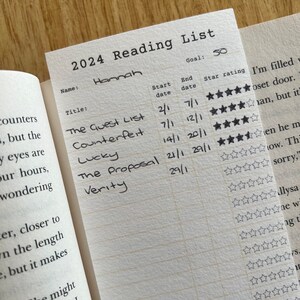 2024 Reading List
Name: Hannah
Goal: 50
Title: Start date End date Star rating
The Guest List 2/1 7/1
Counterfeit 7/1 12/1
Lucky 14/1 20/1
The Proposal 21/1 29/1
Verity 29/1
counters
s, but the
y eyes are
our hours,
wondering
ter, closer to
wn the length
e, but it makes
He might
based on
I'm filled
door set
man, but it's
he m
ow. Th
sorry